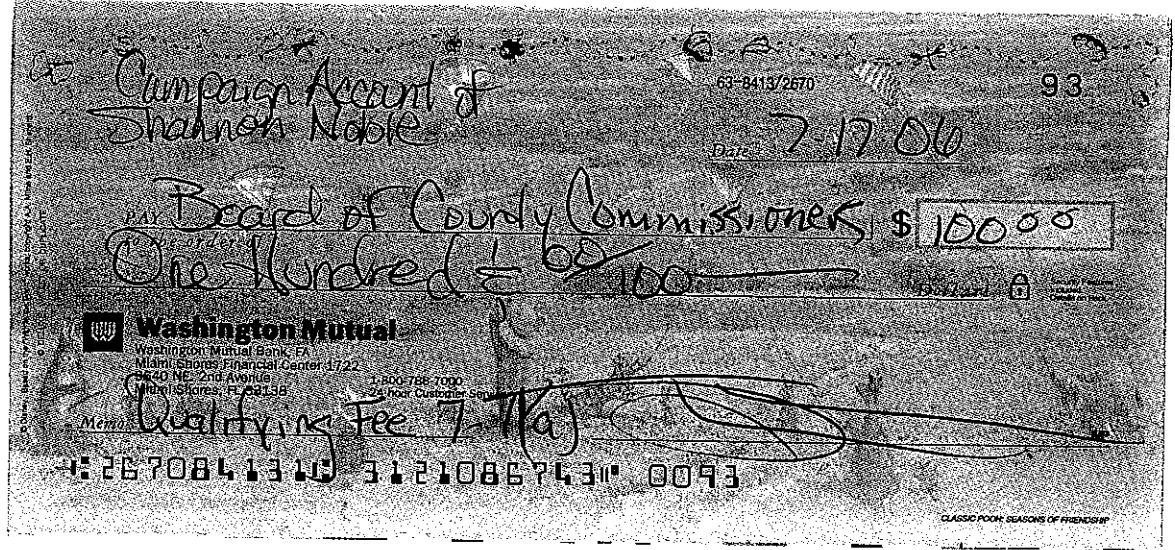 Campaign Account of
Shannon Noble
63-8413/2670
93
Date 7-17-06
PAY Board of County Commissioners $ 100 00
to the order of
One Hundred & 00/100 Dollars
Security Features
Included
Details on Back
Washington Mutual
Washington Mutual Bank, FA
Miami Shores Financial Center 1722
9640 NE. 2nd Avenue
Miami Shores, FL 33138
1-800-788-7000
24 hour Customer Service
Memo Qualifying Fee
MP
267084131 3121086743 0093
CLASSIC POOH: SEASONS OF FRIENDSHIP